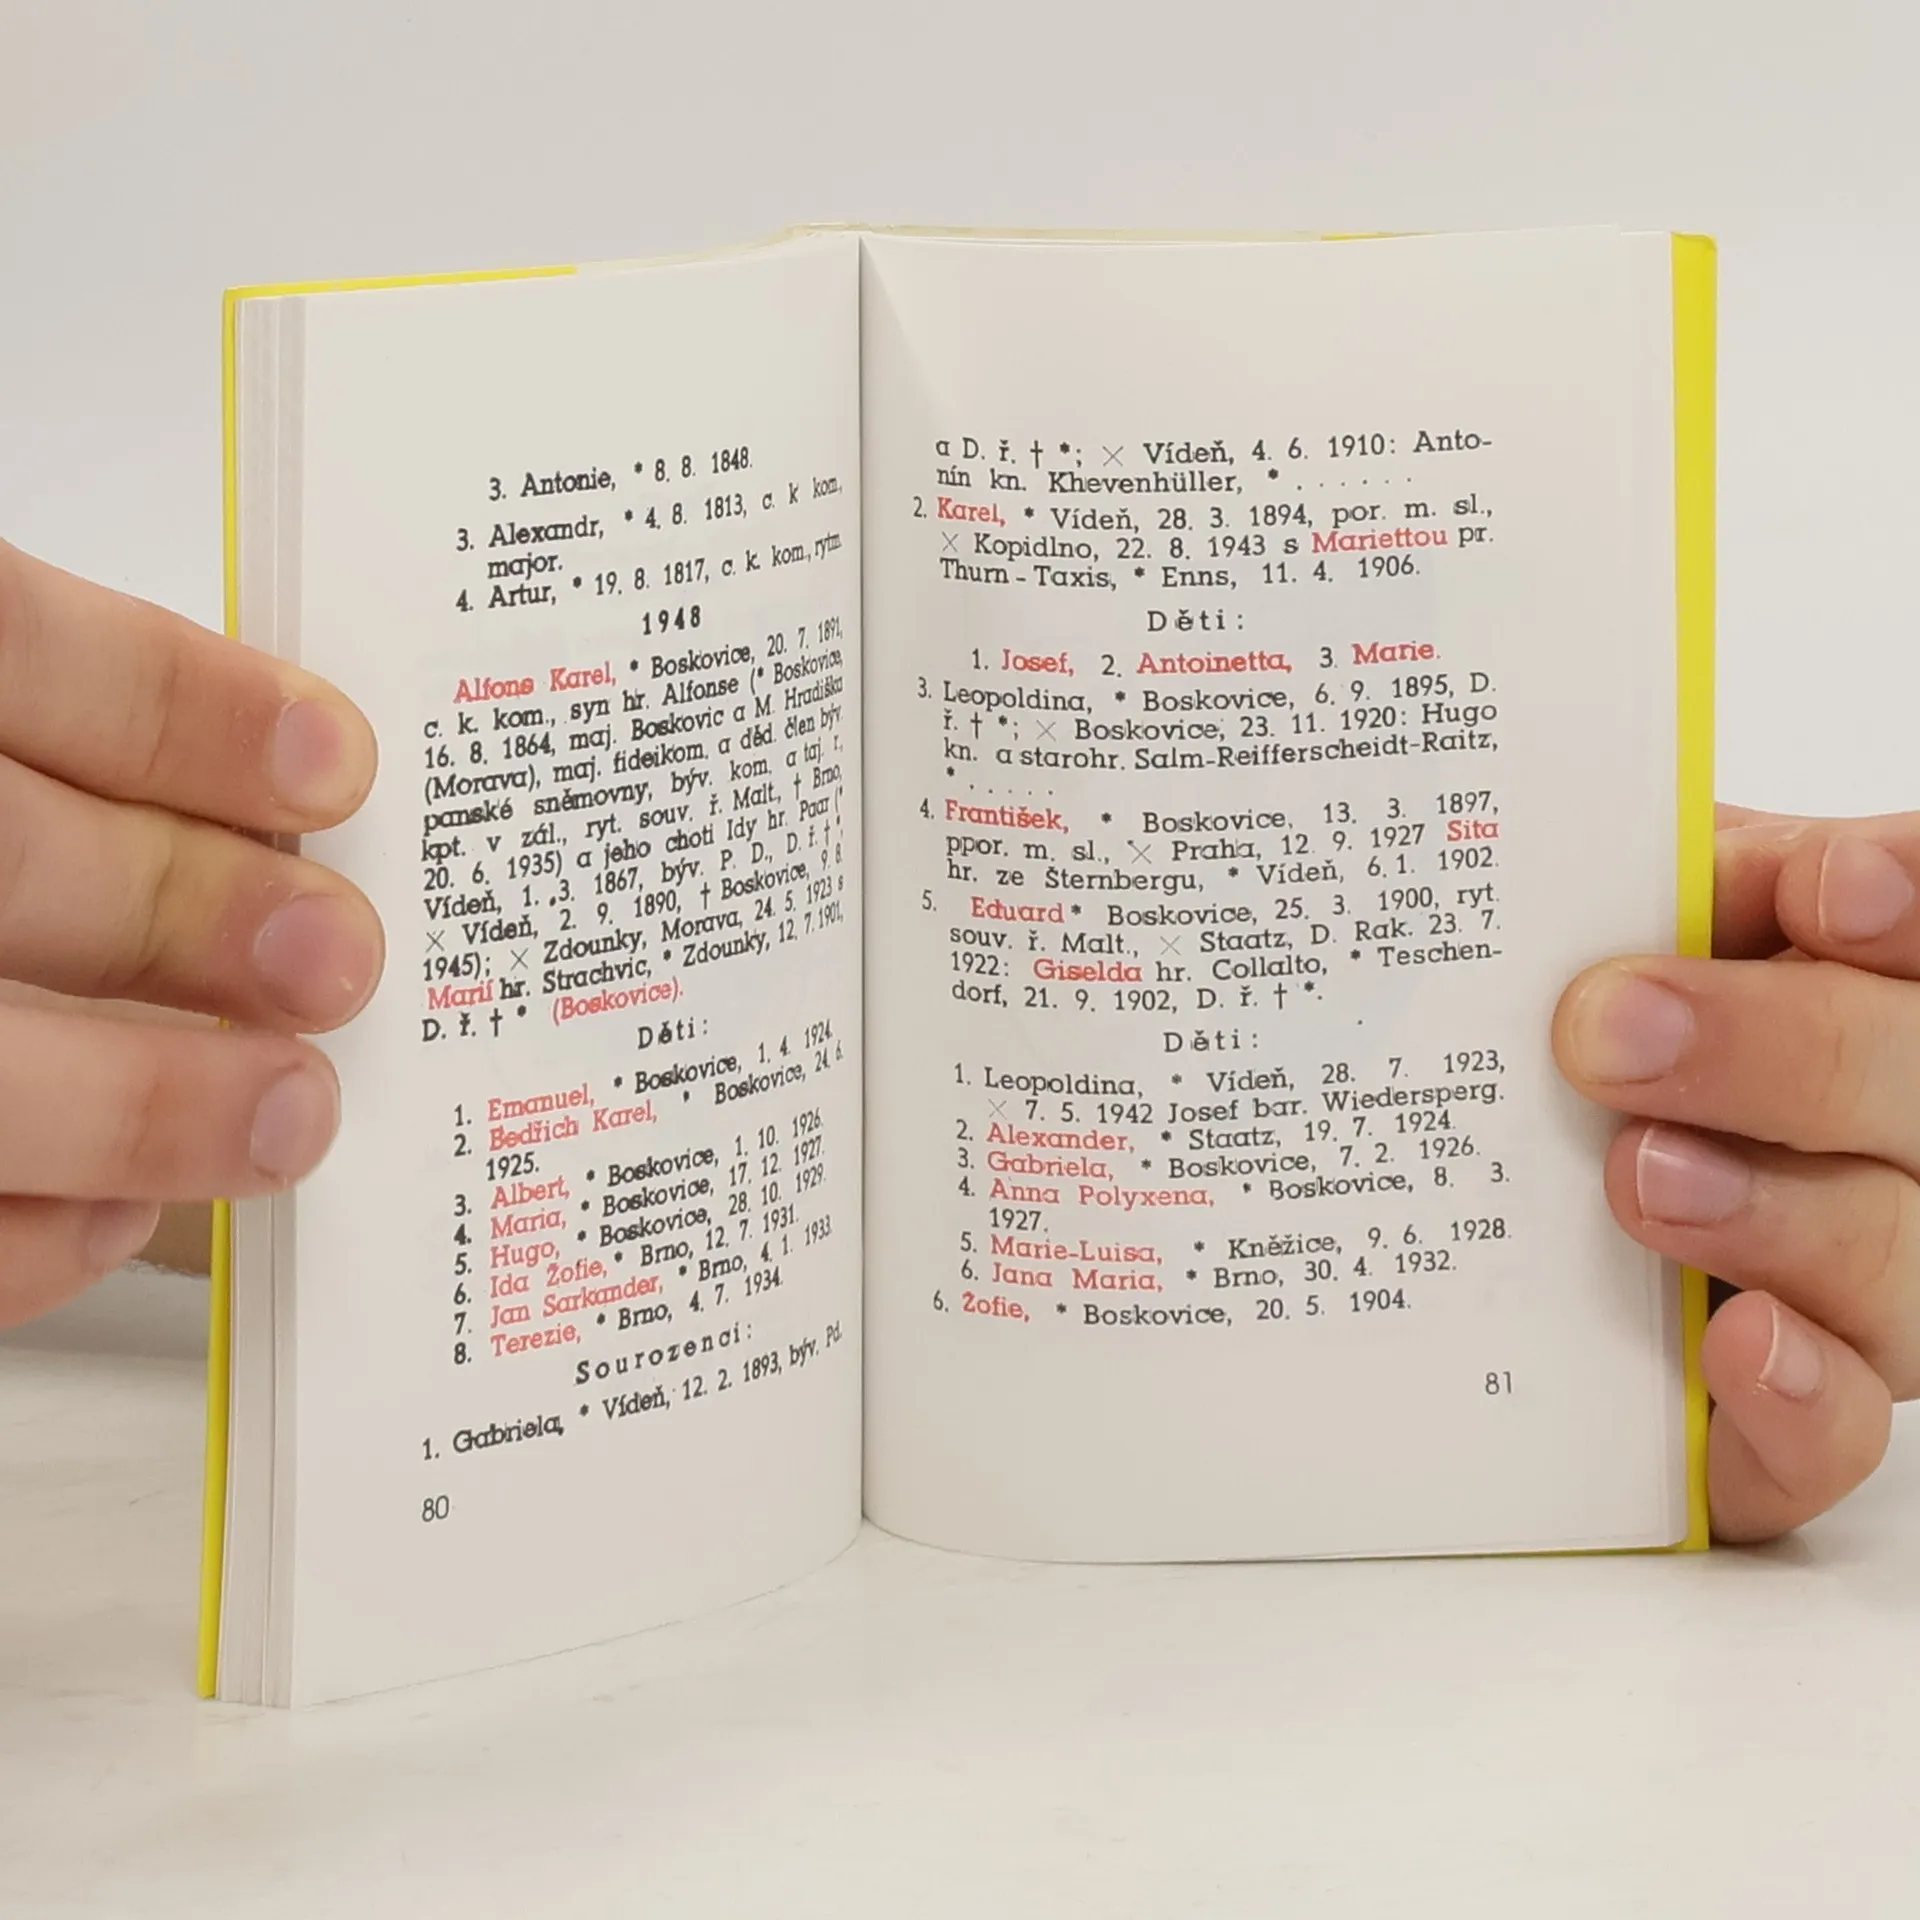 3. Antonie, * 8. 8. 1848.
3. Alexandr, * 4. 8. 1813, c. k kom,
major.
4. Artur, * 19. 8. 1817, c. k. kom., rytm.
1948
Alfons Karel, * Boskovice, 20. 7. 1891,
c. k. kom., syn hr. Alfonse (* Boskovice,
16. 8. 1864, maj. Boskovic a M. Hradiška
(Morava), maj. fideikom. a děd. člen býv.
panské sněmovny, býv. kom. a taj. r.,
kpt. v zál., ryt. souv. ř. Malt., † Brno,
20. 6. 1935) a jeho choti Idy hr. Paar (*
Vídeň, 1. 3. 1867, býv. P. D., D. ř. † *,
× Vídeň, 2. 9. 1890, † Boskovice, 9. 8.
1945); × Zdounky, Morava, 24. 5. 1923 s
Marií hr. Strachvic, * Zdounky, 12. 7. 1901,
D. ř. † * (Boskovice).
Děti:
1. Emanuel, * Boskovice, 1. 4. 1924.
2. Bedřich Karel, * Boskovice, 24. 6.
1925.
3. Albert, * Boskovice, 1. 10. 1926.
4. Maria, * Boskovice, 17. 12. 1927.
5. Hugo, * Boskovice, 28. 10. 1929.
6. Ida Žofie, * Brno, 12. 7. 1931.
7. Jan Sarkander, * Brno, 4. 1. 1933.
8. Terezie, * Brno, 4. 7. 1934.
Sourozenci:
1. Gabriela, * Vídeň, 12. 2. 1893, býv. Pd.
80
a D. ř. † *; × Vídeň, 4. 6. 1910: Anto-
nín kn. Khevenhüller, * . . . . . .
2. Karel, * Vídeň, 28. 3. 1894, por. m. sl.,
× Kopidlno, 22. 8. 1943 s Mariettou pr.
Thurn-Taxis, * Enns, 11. 4. 1906.
Děti:
1. Josef, 2. Antoinetta, 3. Marie.
3. Leopoldina, * Boskovice, 6. 9. 1895, D.
ř. † *; × Boskovice, 23. 11. 1920: Hugo
kn. a starohr. Salm-Reifferscheidt-Raitz,
* . . . . .
4. František, * Boskovice, 13. 3. 1897,
ppor. m. sl., × Praha, 12. 9. 1927 Sita
hr. ze Šternbergu, * Vídeň, 6. 1. 1902.
5. Eduard * Boskovice, 25. 3. 1900, ryt.
souv. ř. Malt., × Staatz, D. Rak. 23. 7.
1922: Giselda hr. Collalto, * Teschen-
dorf, 21. 9. 1902, D. ř. † *.
Děti:
1. Leopoldina, * Vídeň, 28. 7. 1923,
× 7. 5. 1942 Josef bar. Wiedersperg.
2. Alexander, * Staatz, 19. 7. 1924.
3. Gabriela, * Boskovice, 7. 2. 1926.
4. Anna Polyxena, * Boskovice, 8. 3.
1927.
5. Marie-Luisa, * Kněžice, 9. 6. 1928.
6. Jana Maria, * Brno, 30. 4. 1932.
6. Žofie, * Boskovice, 20. 5. 1904.
81